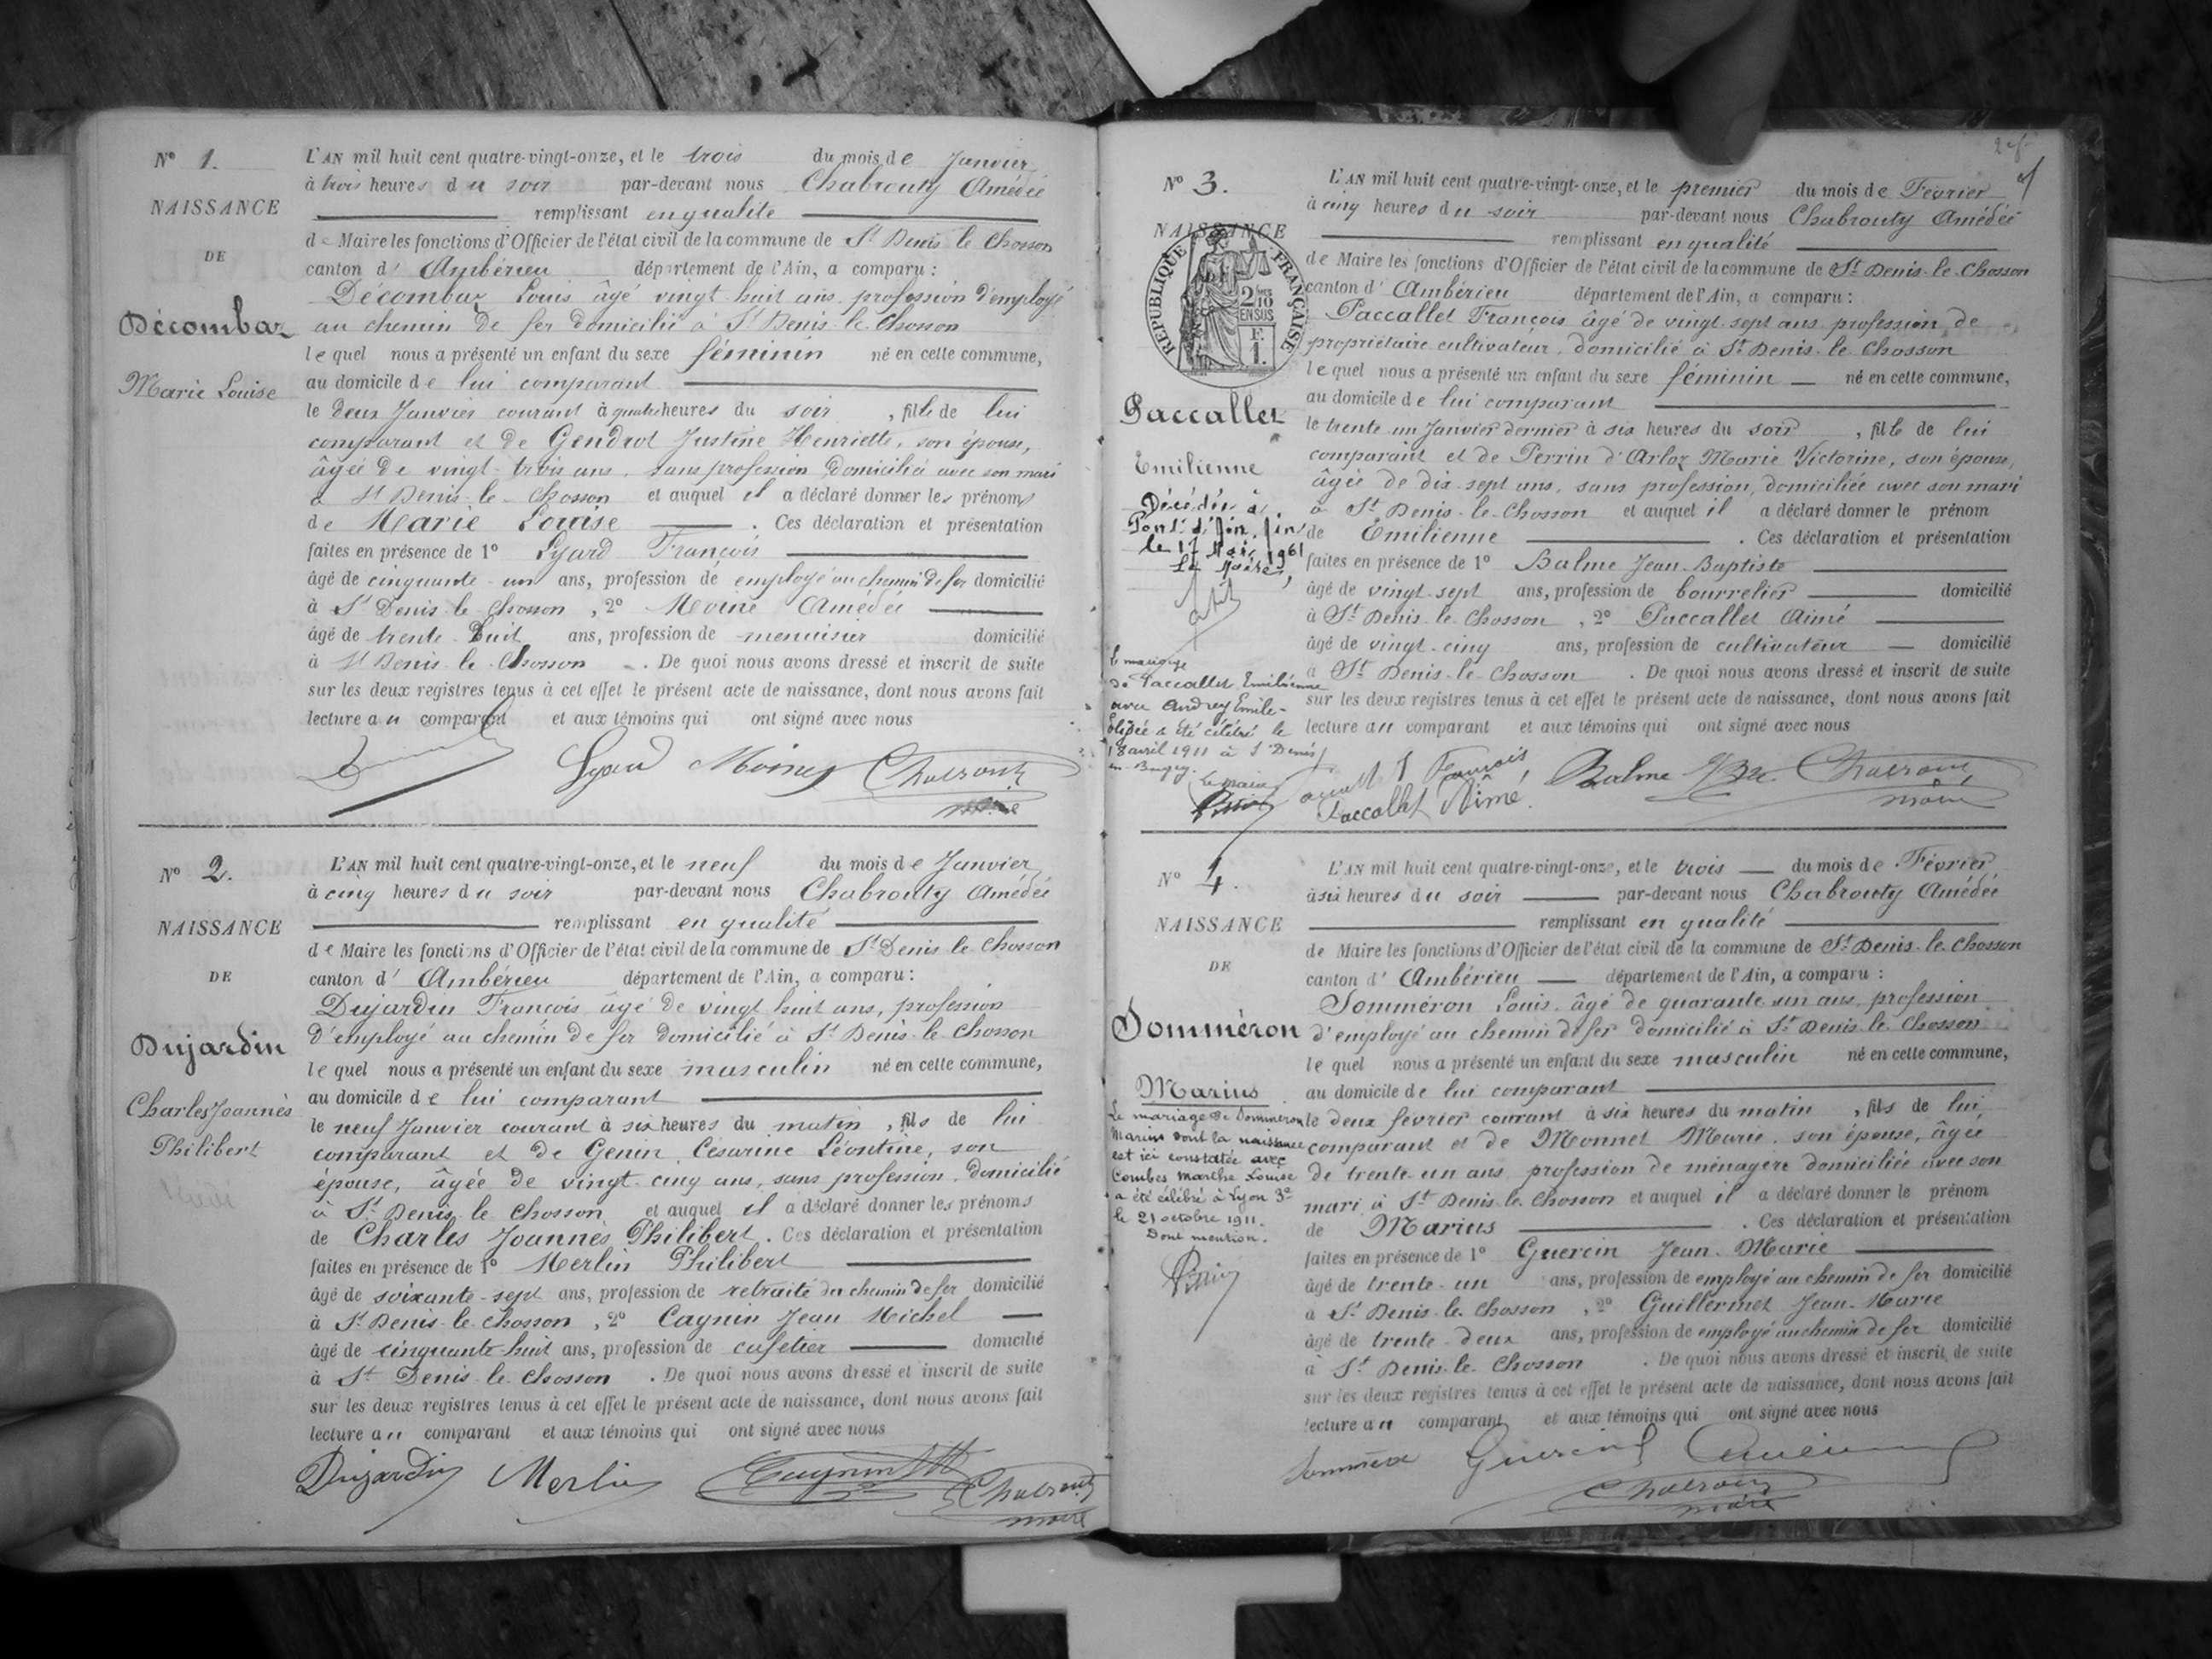 N° 1.
NAISSANCE
DE
Décombaz
Marie Louise
L'AN mil huit cent quatre-vingt-onze, et le trois du mois de Janvier
à trois heures du soir par-devant nous Chabrouty Amédée
remplissant en qualité
de Maire les fonctions d'Officier de l'état civil de la commune de St Denis le Chosson
canton d' Ambérieu département de l'Ain, a comparu :
Décombaz Louis âgé vingt huit ans, profession d'employé
au chemin de fer domicilié à St Denis le Chosson
lequel nous a présenté un enfant du sexe féminin né en cette commune,
au domicile de lui comparant
le deux Janvier courant à quatre heures du soir , fille de lui
comparant et de Gendrot Justine Henriette, son épouse,
âgée de vingt-trois ans, sans profession domiciliée avec son mari
à St Denis-le-Chosson et auquel il a déclaré donner les prénoms
de Marie Louise . Ces déclaration et présentation
faites en présence de 1° Lyard François
âgé de cinquante-un ans, profession de employé au chemin de fer domicilié
à St Denis le Chosson , 2° Moine Amédée
âgé de trente-huit ans, profession de menuisier domicilié
à St Denis le Chosson . De quoi nous avons dressé et inscrit de suite
sur les deux registres tenus à cet effet le présent acte de naissance, dont nous avons fait
lecture au comparant et aux témoins qui ont signé avec nous
Lyard Moine Chabrouty
maire
N° 2.
NAISSANCE
DE
Dujardin
Charles Joannès
Philibert
L'AN mil huit cent quatre-vingt-onze, et le neuf du mois de Janvier
à cinq heures du soir par-devant nous Chabrouty Amédée
remplissant en qualité
de Maire les fonctions d'Officier de l'état civil de la commune de St Denis le Chosson
canton d' Ambérieu département de l'Ain, a comparu :
Dujardin François âgé de vingt huit ans, profession
d'employé au chemin de fer domicilié à St Denis-le-Chosson
lequel nous a présenté un enfant du sexe masculin né en cette commune,
au domicile de lui comparant
le neuf Janvier courant à six heures du matin , fils de lui
comparant et de Genin Césarine Léontine, son
épouse, âgée de vingt-cinq ans, sans profession, domicilié
à St Denis le Chosson et auquel il a déclaré donner les prénoms
de Charles Joannès Philibert . Ces déclaration et présentation
faites en présence de 1° Merlin Philibert
âgé de soixante-sept ans, profession de retraité du chemin de fer domicilié
à St Denis-le-Chosson , 2° Cagnin Jean Michel
âgé de cinquante-huit ans, profession de cafetier domicilié
à St Denis-le-Chosson . De quoi nous avons dressé et inscrit de suite
sur les deux registres tenus à cet effet le présent acte de naissance, dont nous avons fait
lecture au comparant et aux témoins qui ont signé avec nous
Dujardin Merlin Cagnin Chabrouty
maire
N° 3.
NAISSANCE
RÉPUBLIQUE FRANÇAISE
2/10 EN SUS
F. 1.
Paccallet
Emilienne
Décédée à
Pont d'Ain, Ain
le 17 Mai 1961
Le Maire,
le mariage
de Paccallet Emilienne
avec Andrey Emile-
Elisée a été célébré le
18 avril 1911 à St Denis
en Bugey.
Le Maire
L'AN mil huit cent quatre-vingt-onze, et le premier du mois de Février
à cinq heures du soir par-devant nous Chabrouty Amédée
remplissant en qualité
de Maire les fonctions d'Officier de l'état civil de la commune de St Denis-le-Chosson
canton d' Ambérieu département de l'Ain, a comparu :
Paccallet François âgé de vingt-sept ans profession de
propriétaire cultivateur, domicilié à St Denis-le-Chosson
lequel nous a présenté un enfant du sexe féminin né en cette commune,
au domicile de lui comparant
le trente un Janvier dernier à six heures du soir , fille de lui
comparant et de Perrin d'Arloz Marie Victorine, son épouse,
âgée de dix-sept ans, sans profession, domiciliée avec son mari
à St Denis-le-Chosson et auquel il a déclaré donner le prénom
de Emilienne . Ces déclaration et présentation
faites en présence de 1° Balme Jean-Baptiste
âgé de vingt-sept ans, profession de bourrelier domicilié
à St Denis-le-Chosson , 2° Paccallet Aimé
âgé de vingt-cinq ans, profession de cultivateur domicilié
à St Denis-le-Chosson . De quoi nous avons dressé et inscrit de suite
sur les deux registres tenus à cet effet le présent acte de naissance, dont nous avons fait
lecture au comparant et aux témoins qui ont signé avec nous
François Balme Chabrouty
Paccallet Aimé maire
N° 4.
NAISSANCE
DE
Somméron
Marius
Le mariage de Sommeron
Marius dont la naissance
est ici constatée avec
Combes Marthe Louise
a été célébré à Lyon 3e
le 21 octobre 1911.
Dont mention.
L'AN mil huit cent quatre-vingt-onze, et le trois du mois de Février
à six heures du soir par-devant nous Chabrouty Amédée
remplissant en qualité
de Maire les fonctions d'Officier de l'état civil de la commune de St Denis-le-Chosson
canton d' Ambérieu département de l'Ain, a comparu :
Somméron Louis, âgé de quarante un ans, profession
d'employé au chemin de fer domicilié à St Denis-le-Chosson
lequel nous a présenté un enfant du sexe masculin né en cette commune,
au domicile de lui comparant
le deux février courant à six heures du matin , fils de lui
comparant et de Monnet Marie, son épouse, âgée
de trente-un ans profession de ménagère domiciliée avec son
mari à St Denis-le-Chosson et auquel il a déclaré donner le prénom
de Marius . Ces déclaration et présentation
faites en présence de 1° Guercin Jean-Marie
âgé de trente-un ans, profession de employé au chemin de fer domicilié
à St Denis-le-Chosson , 2° Guillermet Jean-Marie
âgé de trente-deux ans, profession de employé au chemin de fer domicilié
à St Denis-le-Chosson . De quoi nous avons dressé et inscrit de suite
sur les deux registres tenus à cet effet le présent acte de naissance, dont nous avons fait
lecture au comparant et aux témoins qui ont signé avec nous
Guercin
Chabrouty
maire